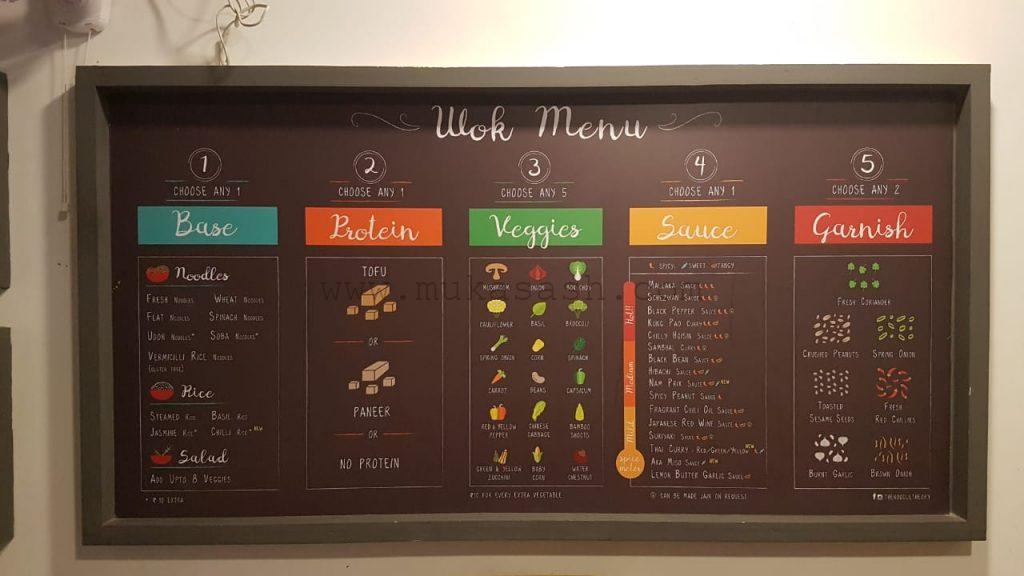 Wok Menu
1
CHOOSE ANY 1
Base
Noodles
FRESH NOODLES WHEAT NOODLES
FLAT NOODLES SPINACH NOODLES
UDON NOODLES* SOBA NOODLES*
VERMICILLI RICE NOODLES
(GLUTEN FREE)
Rice
STEAMED RICE BASIL RICE
JASMINE RICE* CHILLI RICE* NEW
Salad
ADD UPTO 8 VEGGIES
2
CHOOSE ANY 1
Protein
TOFU
OR
PANEER
OR
NO PROTEIN
3
CHOOSE ANY 5
Veggies
MUSHROOM ONION BOK CHOY
CAULIFLOWER BASIL BROCCOLI
SPRING ONION CORN SPINACH
CARROT BEANS CAPSICUM
RED & YELLOW PEPPER
CHINESE CABBAGE
BAMBOO SHOOTS
GREEN & YELLOW ZUCCHINI
BABY CORN
WATER CHESTNUT
FOR EVERY EXTRA VEGETABLE
4
CHOOSE ANY 1
Sauce
SPICY SWEET TANGY
Hot!
Medium
Mild
spice meter
MALLAKA SAUCE
SCHEZWAN SAUCE
BLACK PEPPER SAUCE
KUNG PAO CURRY
CHILLY HOISIN SAUCE
SAMBHAL CURRY
BLACK BEAN SAUCE
HIBACHI SAUCE
NAM PRIK SAUCE NEW
SPICY PEANUT SAUCE
FRAGRANT CHILI OIL SAUCE
JAPANESE RED WINE SAUCE
SUKIYAKI SAUCE
THAI CURRY - RED/GREEN/YELLOW NEW
AKA MISO SAUCE NEW
LEMON BUTTER GARLIC SAUCE
CAN BE MADE JAIN ON REQUEST
5
CHOOSE ANY 2
Garnish
FRESH CORIANDER
CRUSHED PEANUTS SPRING ONION
TOASTED SESAME SEEDS
FRESH RED CHILLIES
BURNT GARLIC BROWN ONION
THENOODLETHEORY